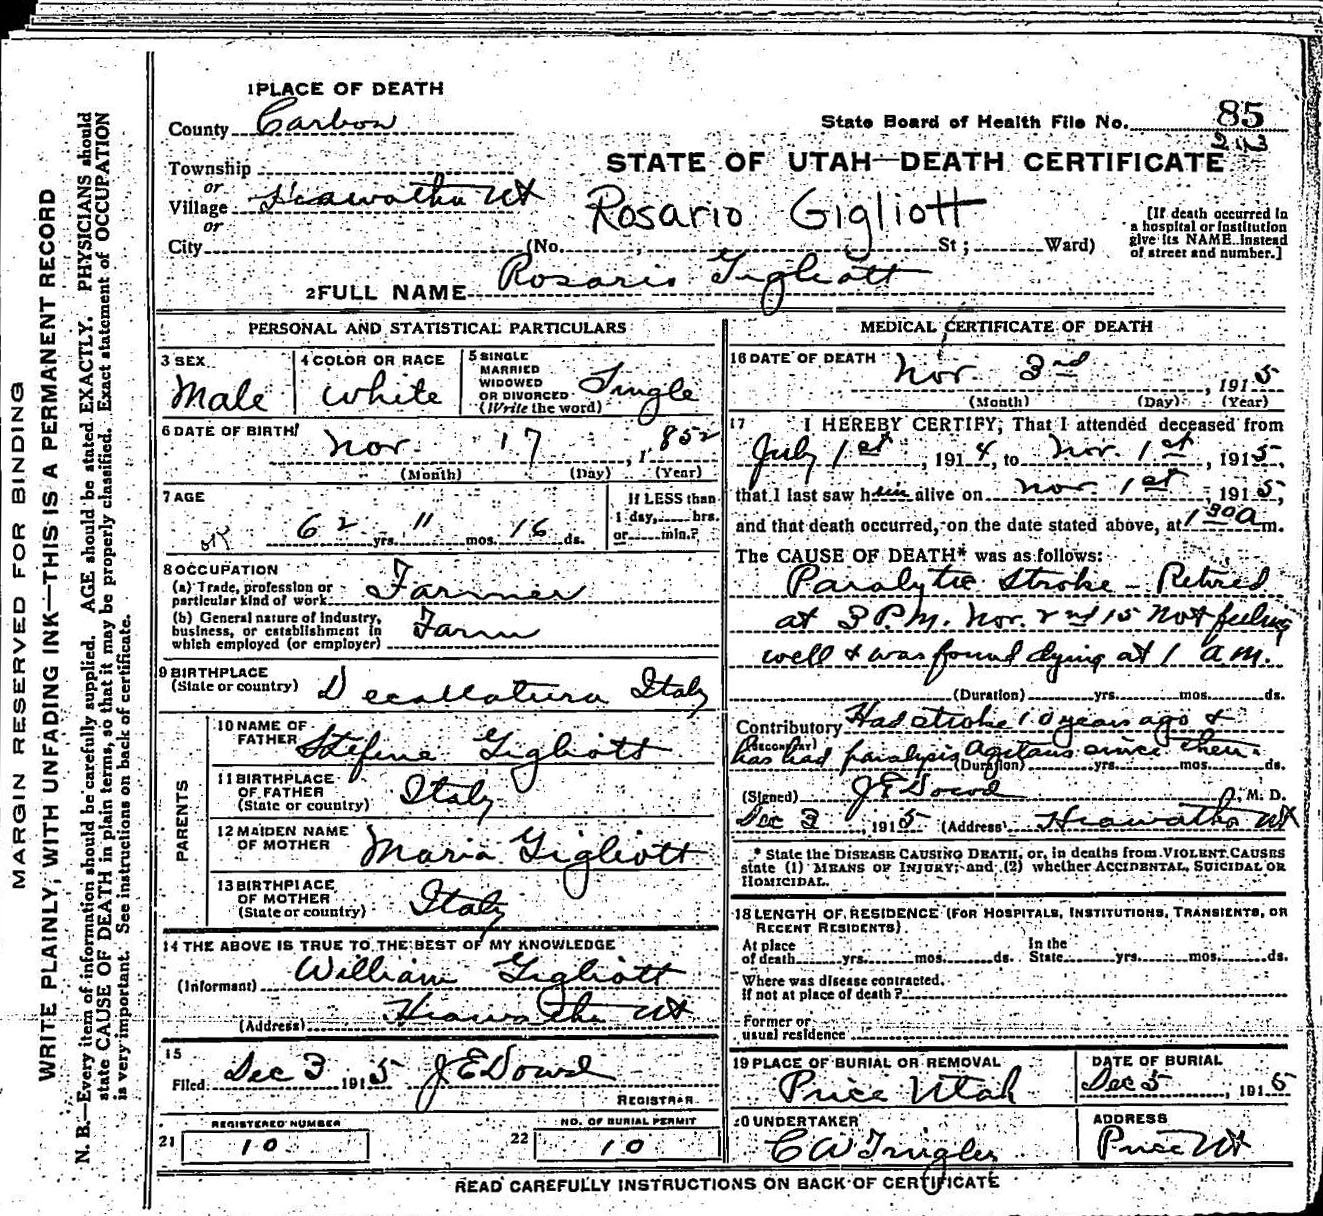 MARGIN RESERVED FOR BINDING
WRITE PLAINLY, WITH UNFADING INK—THIS IS A PERMANENT RECORD
N. B.—Every item of information should be carefully supplied. AGE should be stated EXACTLY. PHYSICIANS should
state CAUSE OF DEATH in plain terms, so that it may be properly classified. Exact statement of OCCUPATION
is very important. See instructions on back of certificate.
1 PLACE OF DEATH
County Carbon
State Board of Health File No. 85
243
Township
or
Village Hiawatha Ut
or
City (No. St; Ward)
STATE OF UTAH—DEATH CERTIFICATE
Rosario Gigliott
[If death occurred in
a hospital or institution
give its NAME instead
of street and number.]
2 FULL NAME Rosario Gigliott
PERSONAL AND STATISTICAL PARTICULARS
3 SEX
Male
4 COLOR OR RACE
White
5 SINGLE
MARRIED
WIDOWED
OR DIVORCED
(Write the word)
Single
6 DATE OF BIRTH
Nov. 17, 1852
(Month) (Day) (Year)
7 AGE
62 yrs. 11 mos. 16 ds.
If LESS than
1 day, hrs.
or min.?
8 OCCUPATION
(a) Trade, profession or
particular kind of work Farmer
(b) General nature of Industry,
business, or establishment in
which employed (or employer) Farm
9 BIRTHPLACE
(State or country) Decallatura Italy
PARENTS
10 NAME OF
FATHER Stefine Gigliott
11 BIRTHPLACE
OF FATHER
(State or country) Italy
12 MAIDEN NAME
OF MOTHER Maria Gigliott
13 BIRTHPLACE
OF MOTHER
(State or country) Italy
14 THE ABOVE IS TRUE TO THE BEST OF MY KNOWLEDGE
(Informant) William Gigliott
(Address) Hiawatha Ut
15
Filed Dec 3 1915 J E Dowd
REGISTRAR
REGISTERED NUMBER
21 10
NO. OF BURIAL PERMIT
22 10
MEDICAL CERTIFICATE OF DEATH
16 DATE OF DEATH Nov. 3rd, 1915
(Month) (Day) (Year)
17 I HEREBY CERTIFY, That I attended deceased from
July 1st, 1914, to Nov. 1st, 1915,
that I last saw him alive on Nov 1st, 1915,
and that death occurred, on the date stated above, at 1 30 a m.
The CAUSE OF DEATH* was as follows:
Paralytic Stroke - Retired
at 3 P.M. Nov. 2nd 15 not feeling
well & was found dying at 1 a m.
(Duration) yrs. mos. ds.
Contributory Had stroke 10 years ago &
(SECONDARY) has had paralysis Agitans since then.
(Duration) yrs. mos. ds.
(Signed) J E Dowd, M. D.
Dec 3, 1915 (Address) Hiawatha Ut
* State the DISEASE CAUSING DEATH, or, in deaths from VIOLENT CAUSES
state (1) MEANS OF INJURY; and (2) whether ACCIDENTAL, SUICIDAL OR
HOMICIDAL.
18 LENGTH OF RESIDENCE (FOR HOSPITALS, INSTITUTIONS, TRANSIENTS, OR
RECENT RESIDENTS)
At place
of death yrs. mos. ds.
In the
State yrs. mos. ds.
Where was disease contracted,
If not at place of death?
Former or
usual residence
19 PLACE OF BURIAL OR REMOVAL
Price Utah
DATE OF BURIAL
Dec 5, 1915
20 UNDERTAKER
C W
ADDRESS
Price Ut
READ CAREFULLY INSTRUCTIONS ON BACK OF CERTIFICATE